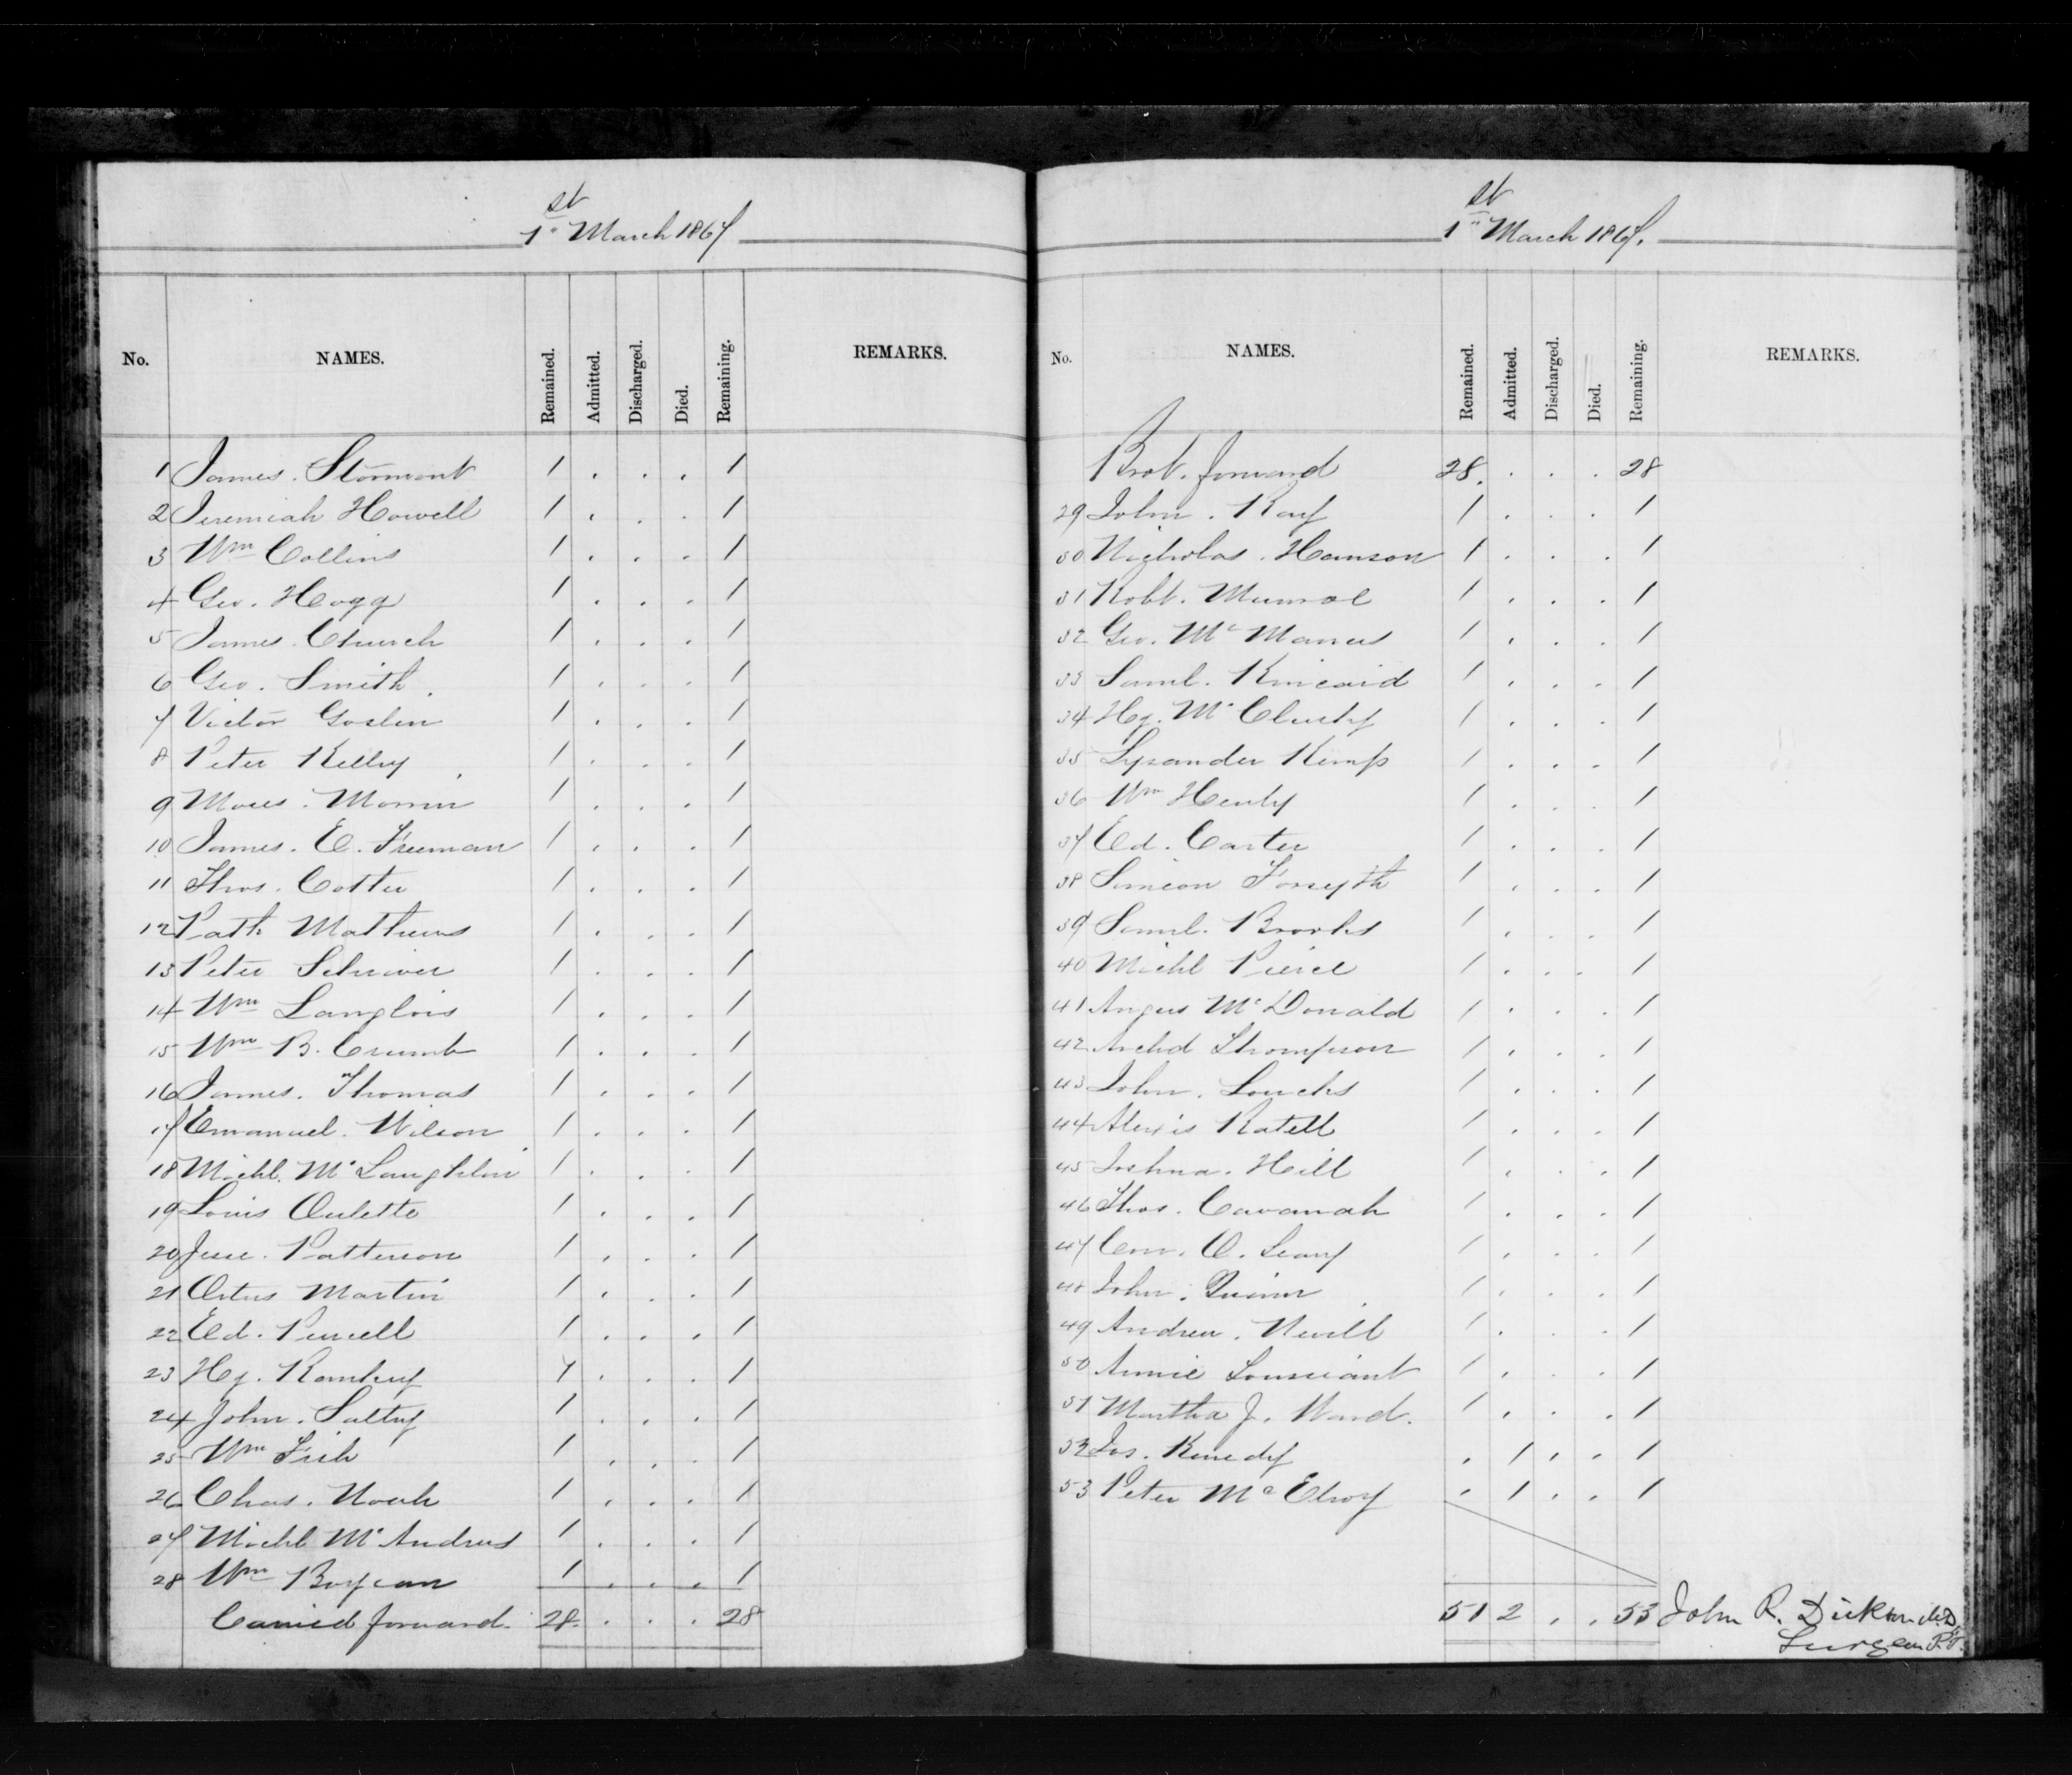 1st March 1867
No. NAMES. Remained. Admitted. Discharged. Died. Remaining. REMARKS.
1 James. Stormont 1 . . . 1
2 Jeremiah Howell 1 . . . 1
3 Wm Collins 1 . . . 1
4 Geo. Hogg 1 . . . 1
5 James. Church 1 . . . 1
6 Geo. Smith. 1 . . . 1
7 Victor Goslin 1 . . . 1
8 Peter Kelly 1 . . . 1
9 Moses. Morrin 1 . . . 1
10 James. E. Freeman 1 . . . 1
11 Thos. Cotter 1 . . . 1
12 Patk Mathews 1 . . . 1
13 Peter Schriver 1 . . . 1
14 Wm Langlois 1 . . . 1
15 Wm B. Crumb 1 . . . 1
16 James. Thomas 1 . . . 1
17 Emanuel. Wilson 1 . . . 1
18 Michl. McLaughlin 1 . . . 1
19 Louis Oulette 1 . . . 1
20 Jesse. Patterson 1 . . . 1
21 Ortus Martin 1 . . . 1
22 Ed. Purcell 1 . . . 1
23 Hy. 1 . . . 1
24 John. Saltry 1 . . . 1
25 Wm Fish 1 . . . 1
26 Chas. 1 . . . 1
27 Michl McAndrus 1 . . . 1
28 Wm 1 . . . 1
Carried forward. 28 . . . 28
1st March 1867.
No. NAMES. Remained. Admitted. Discharged. Died. Remaining. REMARKS.
Brot. forward 28. . . . 28
29 John. Ray 1 . . . 1
30 Nicholas. Hanson 1 . . . 1
31 Robt. Munroe 1 . . . 1
32 Geo. McManus 1 . . . 1
33 Saml. Kincaid 1 . . . 1
34 Hy. McClusty 1 . . . 1
35 Lysander Kemp 1 . . . 1
36 Wm Henly 1 . . . 1
37 Ed. Carter 1 . . . 1
38 Simeon Forsyth 1 . . . 1
39 Saml. Brooks 1 . . . 1
40 Michl Pierce 1 . . . 1
41 Angus McDonald 1 . . . 1
42 Archd Thompson 1 . . . 1
43 John. Loucks 1 . . . 1
44 Alexis Ratell 1 . . . 1
45 Joshua. Hill 1 . . . 1
46 Thos. Cavanah 1 . . . 1
47 Cor. O. Leary 1 . . . 1
48 John. Quinn 1 . . . 1
49 Andrew. Nevill 1 . . . 1
50 Annie 1 . . . 1
51 Martha J. Ward. 1 . . . 1
52 Jos. Kenedy . 1 . . 1
53 Peter McElroy . 1 . . 1
51 2 . . 53 John R. Dickson M.D.
Surgeon P.P.